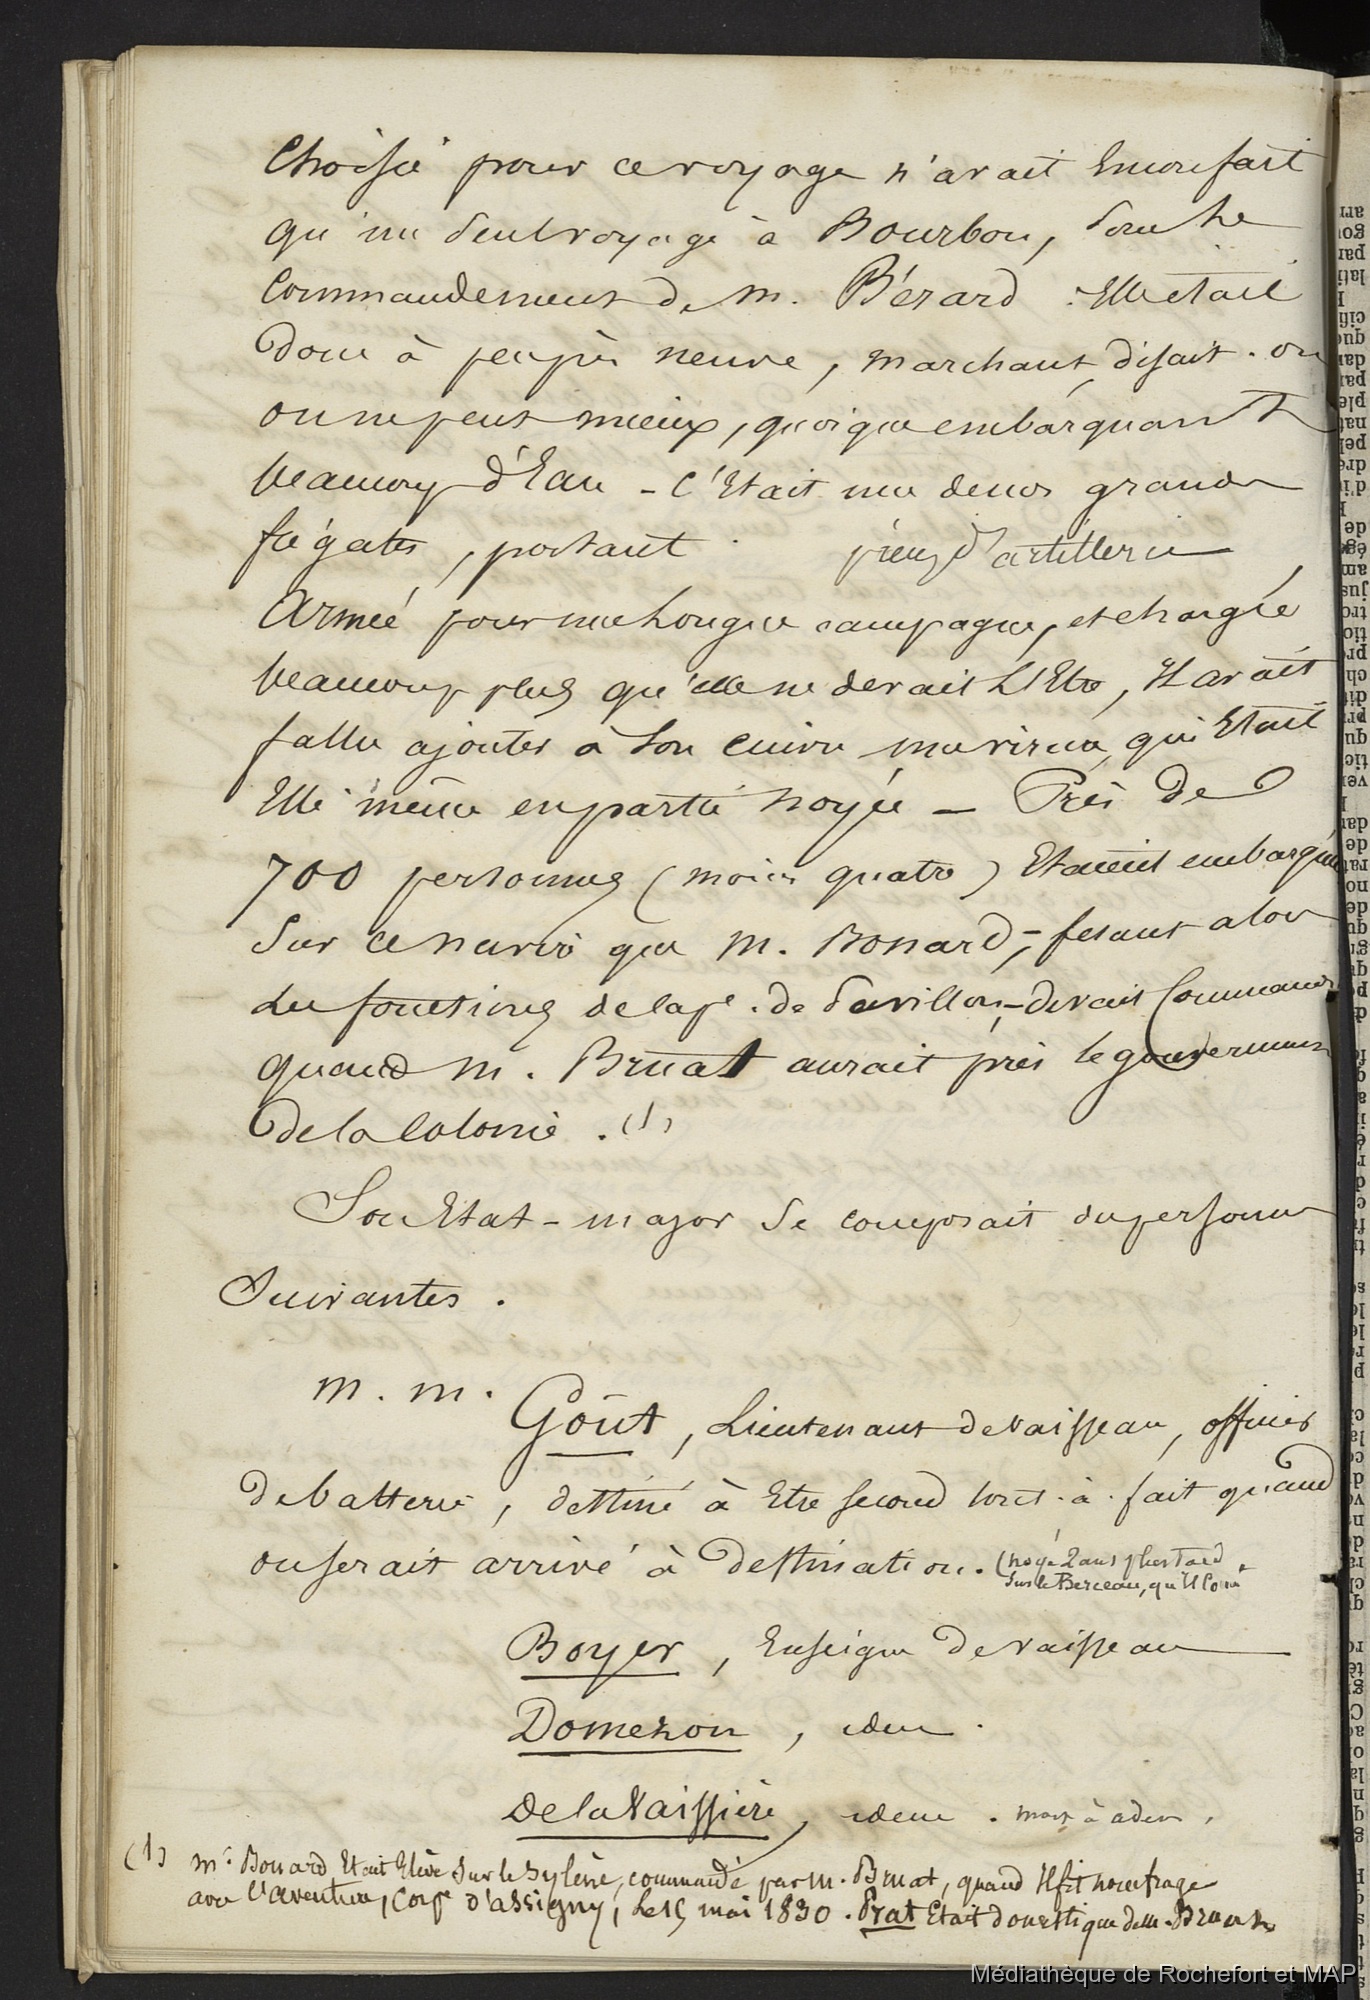 Choisie pour ce voyage n'avait encore fait
qu'un seul voyage à Bourbon, sous le
Commandement de M. Bérard. Elle était
donc à peu près neuve, marchant, disait-on
on ne peut mieux, quoique embarquant
beaucoup d'Eau - C'Etait une de nos grandes
frégates, portant pièces d'artillerie
Armée pour une longue campagne, et chargée
beaucoup plus qu'elle ne devait l'Etre, Il avait
fallu ajouter à son cuivre une virure, qui Etait
Elle même en partie noyée - Près de
700 personnes (moins quatre) Etaient embarquées
Sur ce navire que M. Bonard,- fesant alors
les fonctions de cap.e de Pavillon,- devait Commander
quand M. Bruat aurait pris le gouvernement
de la Colonie. (1)
Son Etat-major se composait des personnes
Suivantes.
M. M. Goût, Lieutenant de vaisseau, officier
de batterie, destiné à Etre second tout-à-fait quand
on serait arrivé à destination. (noyé 2 ans plus tard
sur le Berceau, qu'il
Boyer, Enseigne de vaisseau
Domezon, idem.
De la Vaissière, idem. mort à aden.
(1) Mr. Bonard Etait Elève sur le Sylène, commandé par M. Bruat, quand Il fit naufrage
avec l'aventure, Cape d'assigny, le 15 mai 1830. Prat Etait domestique de M. Bruat
Médiathèque de Rochefort et MAP